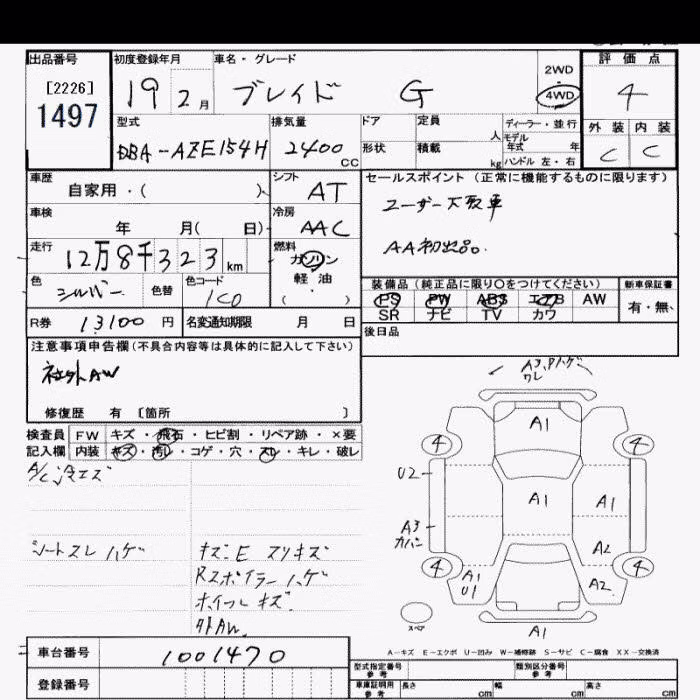 出品番号 初度登録年月 車名・グレード 評価点
[2226]
1497
19 2月 ブレイド G
2WD
4WD
4
型式 排気量 ドア 定員 人 ディーラー・並行 外装 内装
DBA-AZE154H 2400cc 形状 積載 kg モデル年式 年 ハンドル 左・右 C C
車歴 シフト セールスポイント(正常に機能するものに限ります)
自家用・( ) AT ユーザー下取車
車検 冷房
年 月( 日) AAC AA初出品。
走行 燃料
12万8千323km ガソリン
軽油
・( )
色 色替 色コード 装備品(純正品に限り〇をつけてください) 新車保証書
シルバー 1C0 PS PW ABS エアB AW 有・無、
SR ナビ TV カワ
R券 13100円 名変通知期限 月 日 後日品
注意事項申告欄(不具合内容等は具体的に記入して下さい)
社外AW
修復歴 有 〔箇所 〕
検査員 FW キズ・飛石・ヒビ割・リペア跡・×要
記入欄 内装 キズ・汚レ・コゲ・穴・スレ・キレ・破レ
シートスレ ハゲ
キズE スリキズ
Rスポイラー ハゲ
ホイールキズ
外AW
A1
4 4
U2
A1 A1
A3
カバン
A2
4 4
A1
U1
A2
スペア
A1
A-キズ E-エクボ U-凹み W-補修跡 S-サビ C-腐食 XX-交換済
車台番号 1001470
登録番号
型式指定番号 参考 類別区分番号 参考
車庫証明用 参考 長さ cm 幅 cm 高さ cm